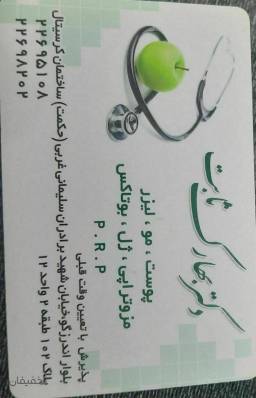 دکتر بهارک ثابت
پوست ، مو ، لیزر
مزوتراپی ، ژل ، بوتاکس
P . R . P
پذیرش با تعیین وقت قبلی
بلوار اندرزگو،خیابان شهید برادران سلیمانی غربی (حکمت) ساختمان کریستال
پلاک ۱۰۲ طبقه ۲ واحد ۱۲
۲۲۶۹۵۱۰۸
۲۲۶۹۸۲۰۲
تخفیفان